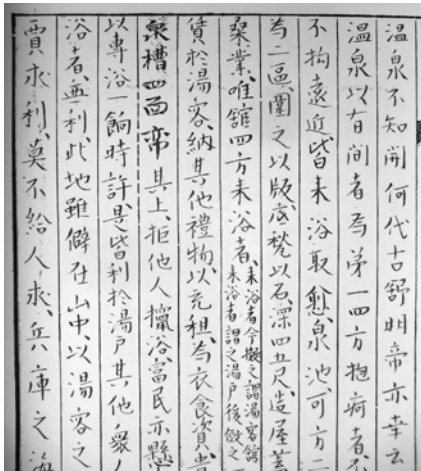 温泉不知開何代古舒明帝亦幸云
温泉以有间者為第一四方抱病者不
不拘遠近皆来浴取愈泉池可方二
為二區圍之以版底甃以石深四五尺造屋蓋
桑業唯舘四方来浴者来浴者今擬之謂湯客舘
来浴者謂之湯戸後倣之
賃於湯客納其他禮物以充租為衣食資
泉槽四面帟其上拒他人擅浴富民亦懸
以専浴一餉時許是皆利於湯戸其他衆人
浴者要利此地雖僻在山中以湯客之
賈求利莫不給人求兵庫之海